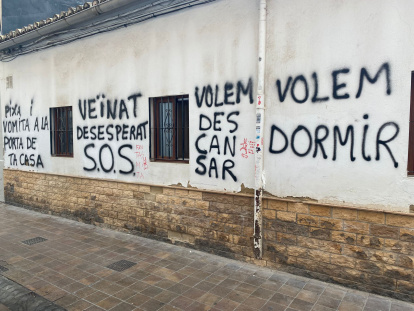 PIXA I
VOMITA A LA
PORTA DE
TA CASA
VEÏNAT
DESESPERAT
S.O.S.
VOLEM
DES
CAN
SAR
VOLEM
DORMIR